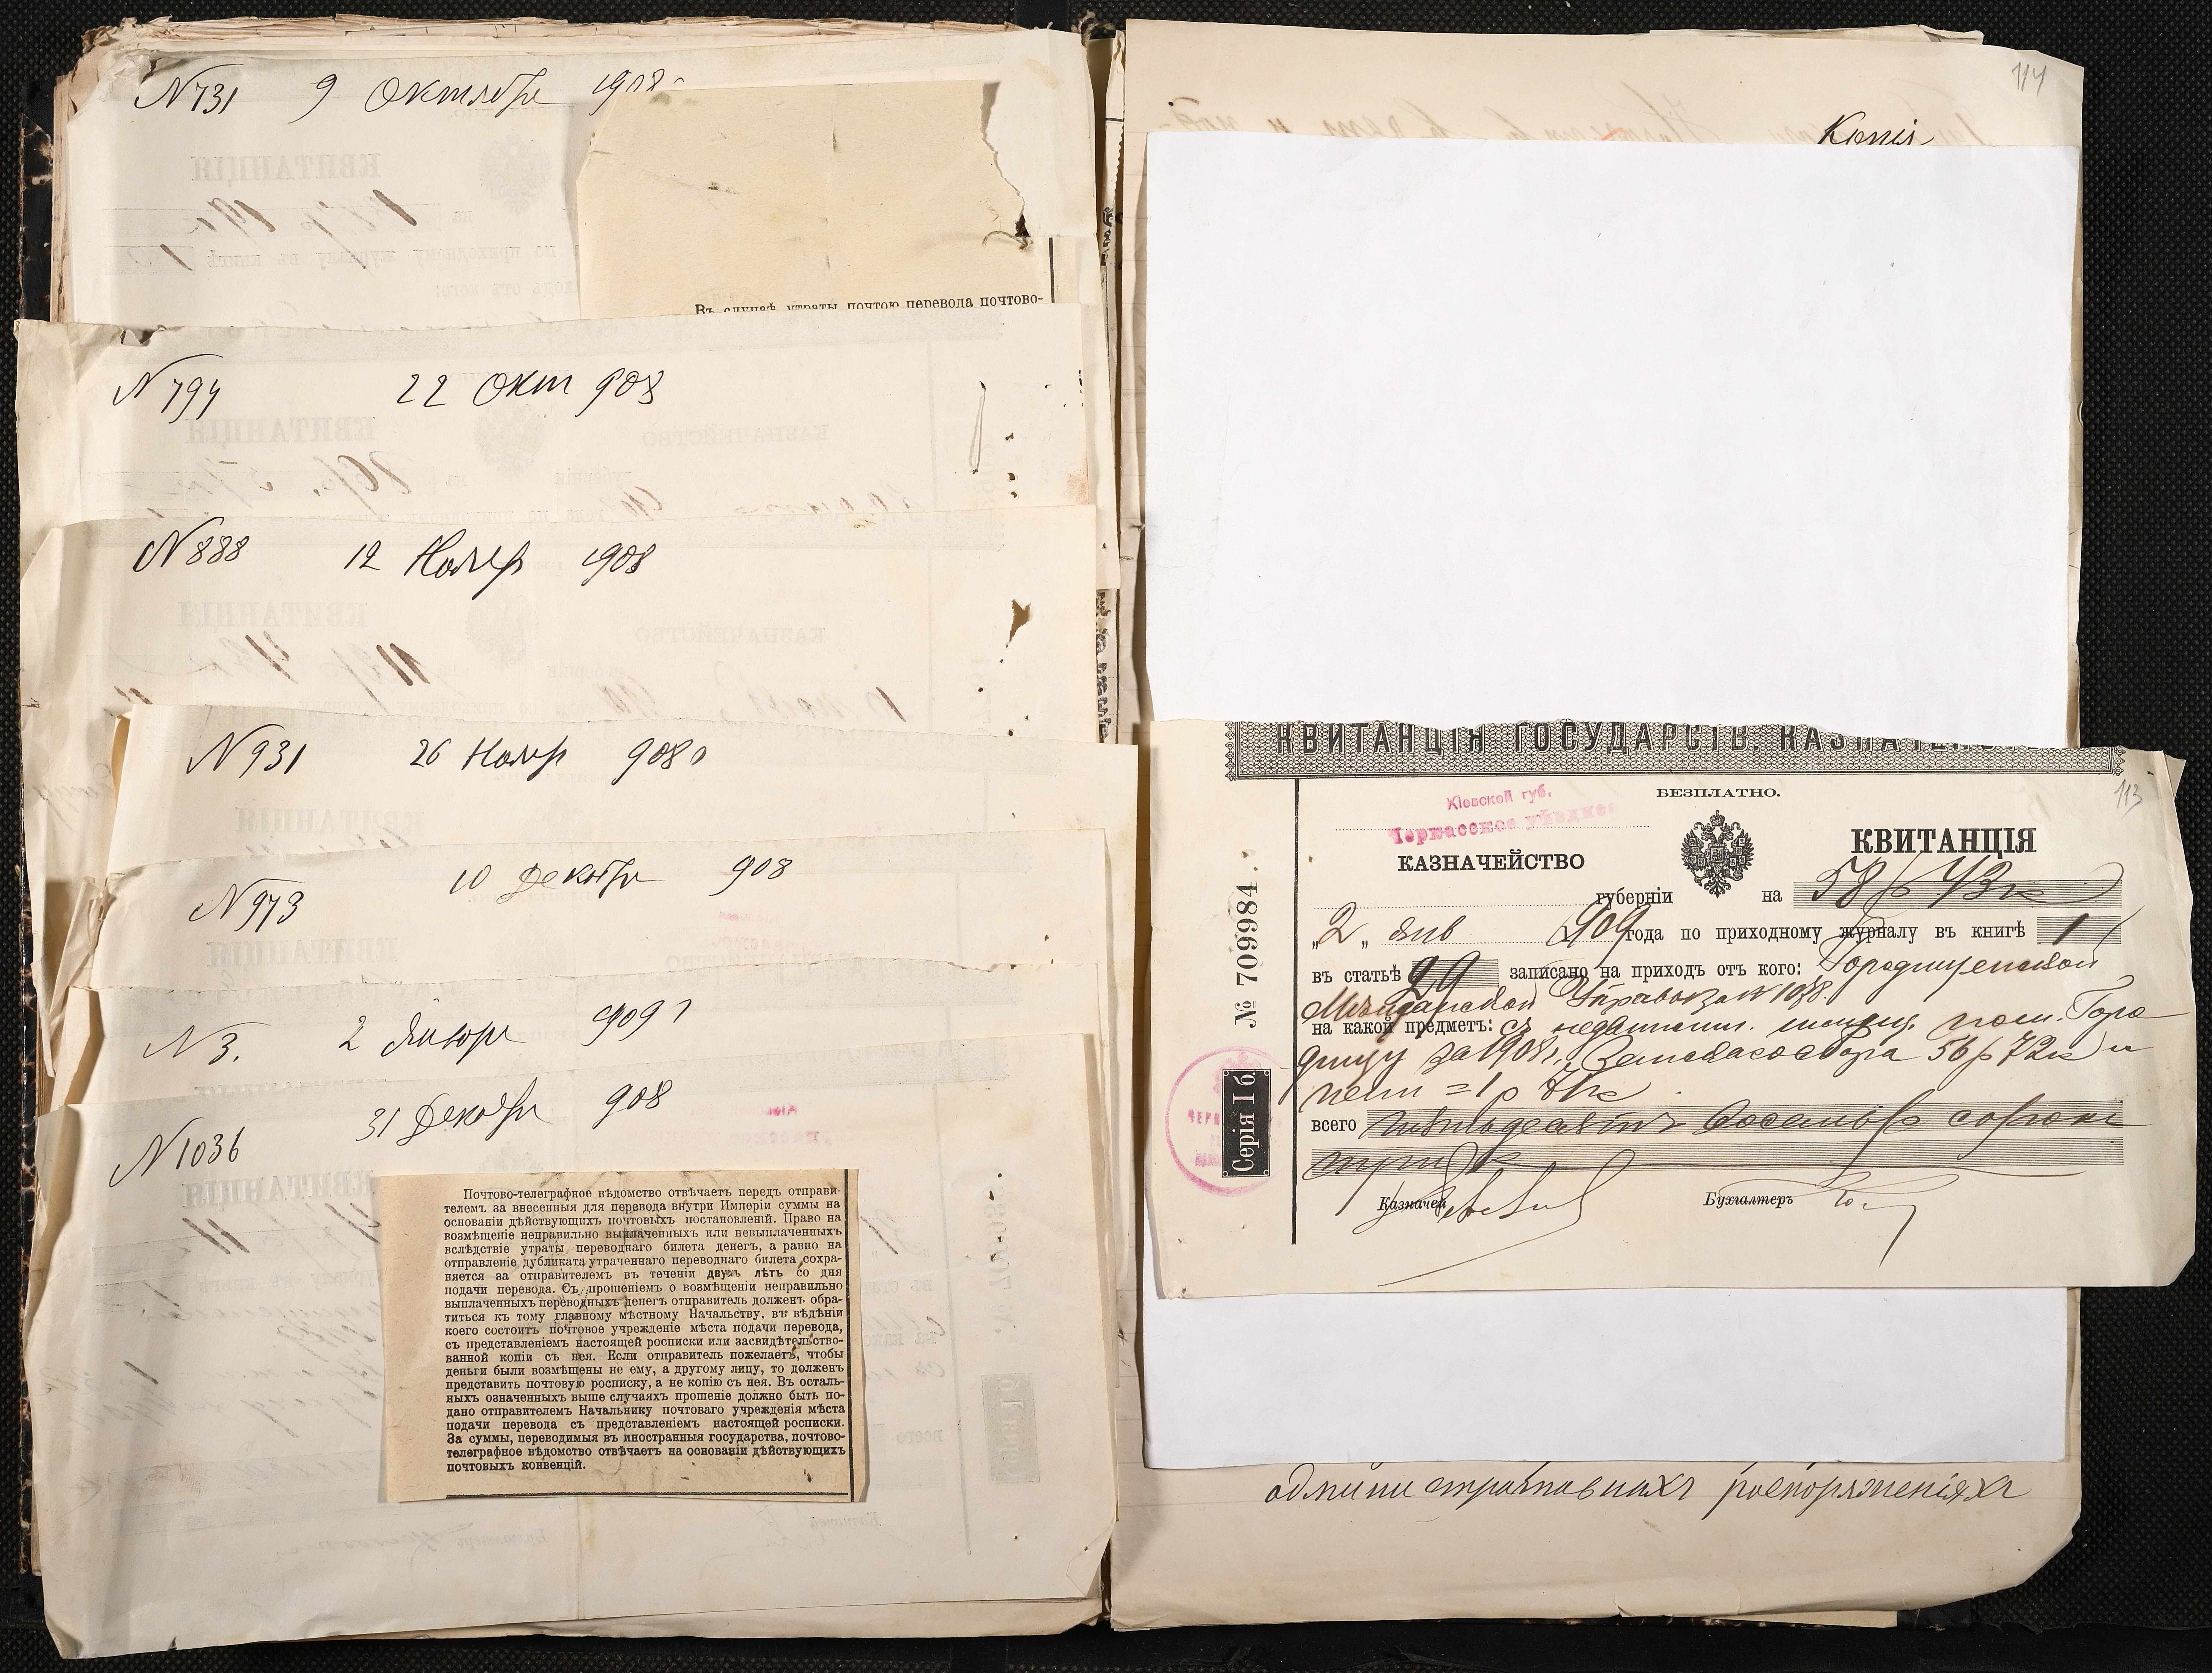 N 731 9 Октября 1908
Въ случаѣ утраты почтою перевода почтово-
N 794 22 Окт 908
N 888 12 Ноябр 1908
N 931 26 Ноябр 908
N 973 10 Декабря 908
N 3. 2 Января 1909
N 1036 31 Декабря 908
Почтово-телеграфное вѣдомство отвѣчаетъ передъ отправи-
телемъ за внесенныя для перевода внутри Имперіи суммы на
основаніи дѣйствующихъ почтовыхъ постановленій. Право на
возмѣщеніе неправильно выплаченныхъ или невыплаченныхъ
вслѣдствіе утраты переводнаго билета денегъ, а равно на
отправленіе дубликата утраченнаго переводнаго билета сохра-
няется за отправителемъ въ теченіи двухъ лѣтъ со дня
подачи перевода. Съ прошеніемъ о возмѣщеніи неправильно
выплаченныхъ переводныхъ денегъ отправитель долженъ обра-
титься къ тому главному мѣстному Начальству, въ вѣдѣніи
коего состоитъ почтовое учрежденіе мѣста подачи перевода,
съ представленіемъ настоящей росписки или засвидѣтельство-
ванной копіи съ нея. Если отправитель пожелаетъ, чтобы
деньги были возмѣщены не ему, а другому лицу, то долженъ
представить почтовую росписку, а не копію съ нея. Въ осталь-
ныхъ означенныхъ выше случаяхъ прошеніе должно быть по-
дано отправителемъ Начальнику почтоваго учрежденія мѣста
подачи перевода съ представленіемъ настоящей росписки.
За суммы, переводимыя въ иностранныя государства, почтово-
телеграфное вѣдомство отвѣчаетъ на основаніи дѣйствующихъ
почтовыхъ конвенцій.
114
Копія
КВИТАНЦІЯ ГОСУДАРСТВ. КАЗНАЧЕЙСТВА
113
БЕЗПЛАТНО.
Кіевской губ.
Черкасское уѣздное
КАЗНАЧЕЙСТВО
КВИТАНЦІЯ
губерніи на 58 р 43 к
"2" янв 1909 года по приходному журналу въ книгѣ 1
въ статьѣ 29 записано на приходъ отъ кого: Городищенской
Мѣщанской Управы за N 1038.
на какой предметъ: съ недвижим. имущ. пош. Горо
дищу за 1908 г. Земскаго сбора 56 р 72 к и
пени = 1 р 71 к
всего пятьдесятъ восемь р сорокъ
три к
Казначей
Бухгалтеръ
№ 709984
Серія I б.
административныхъ распоряженіяхъ